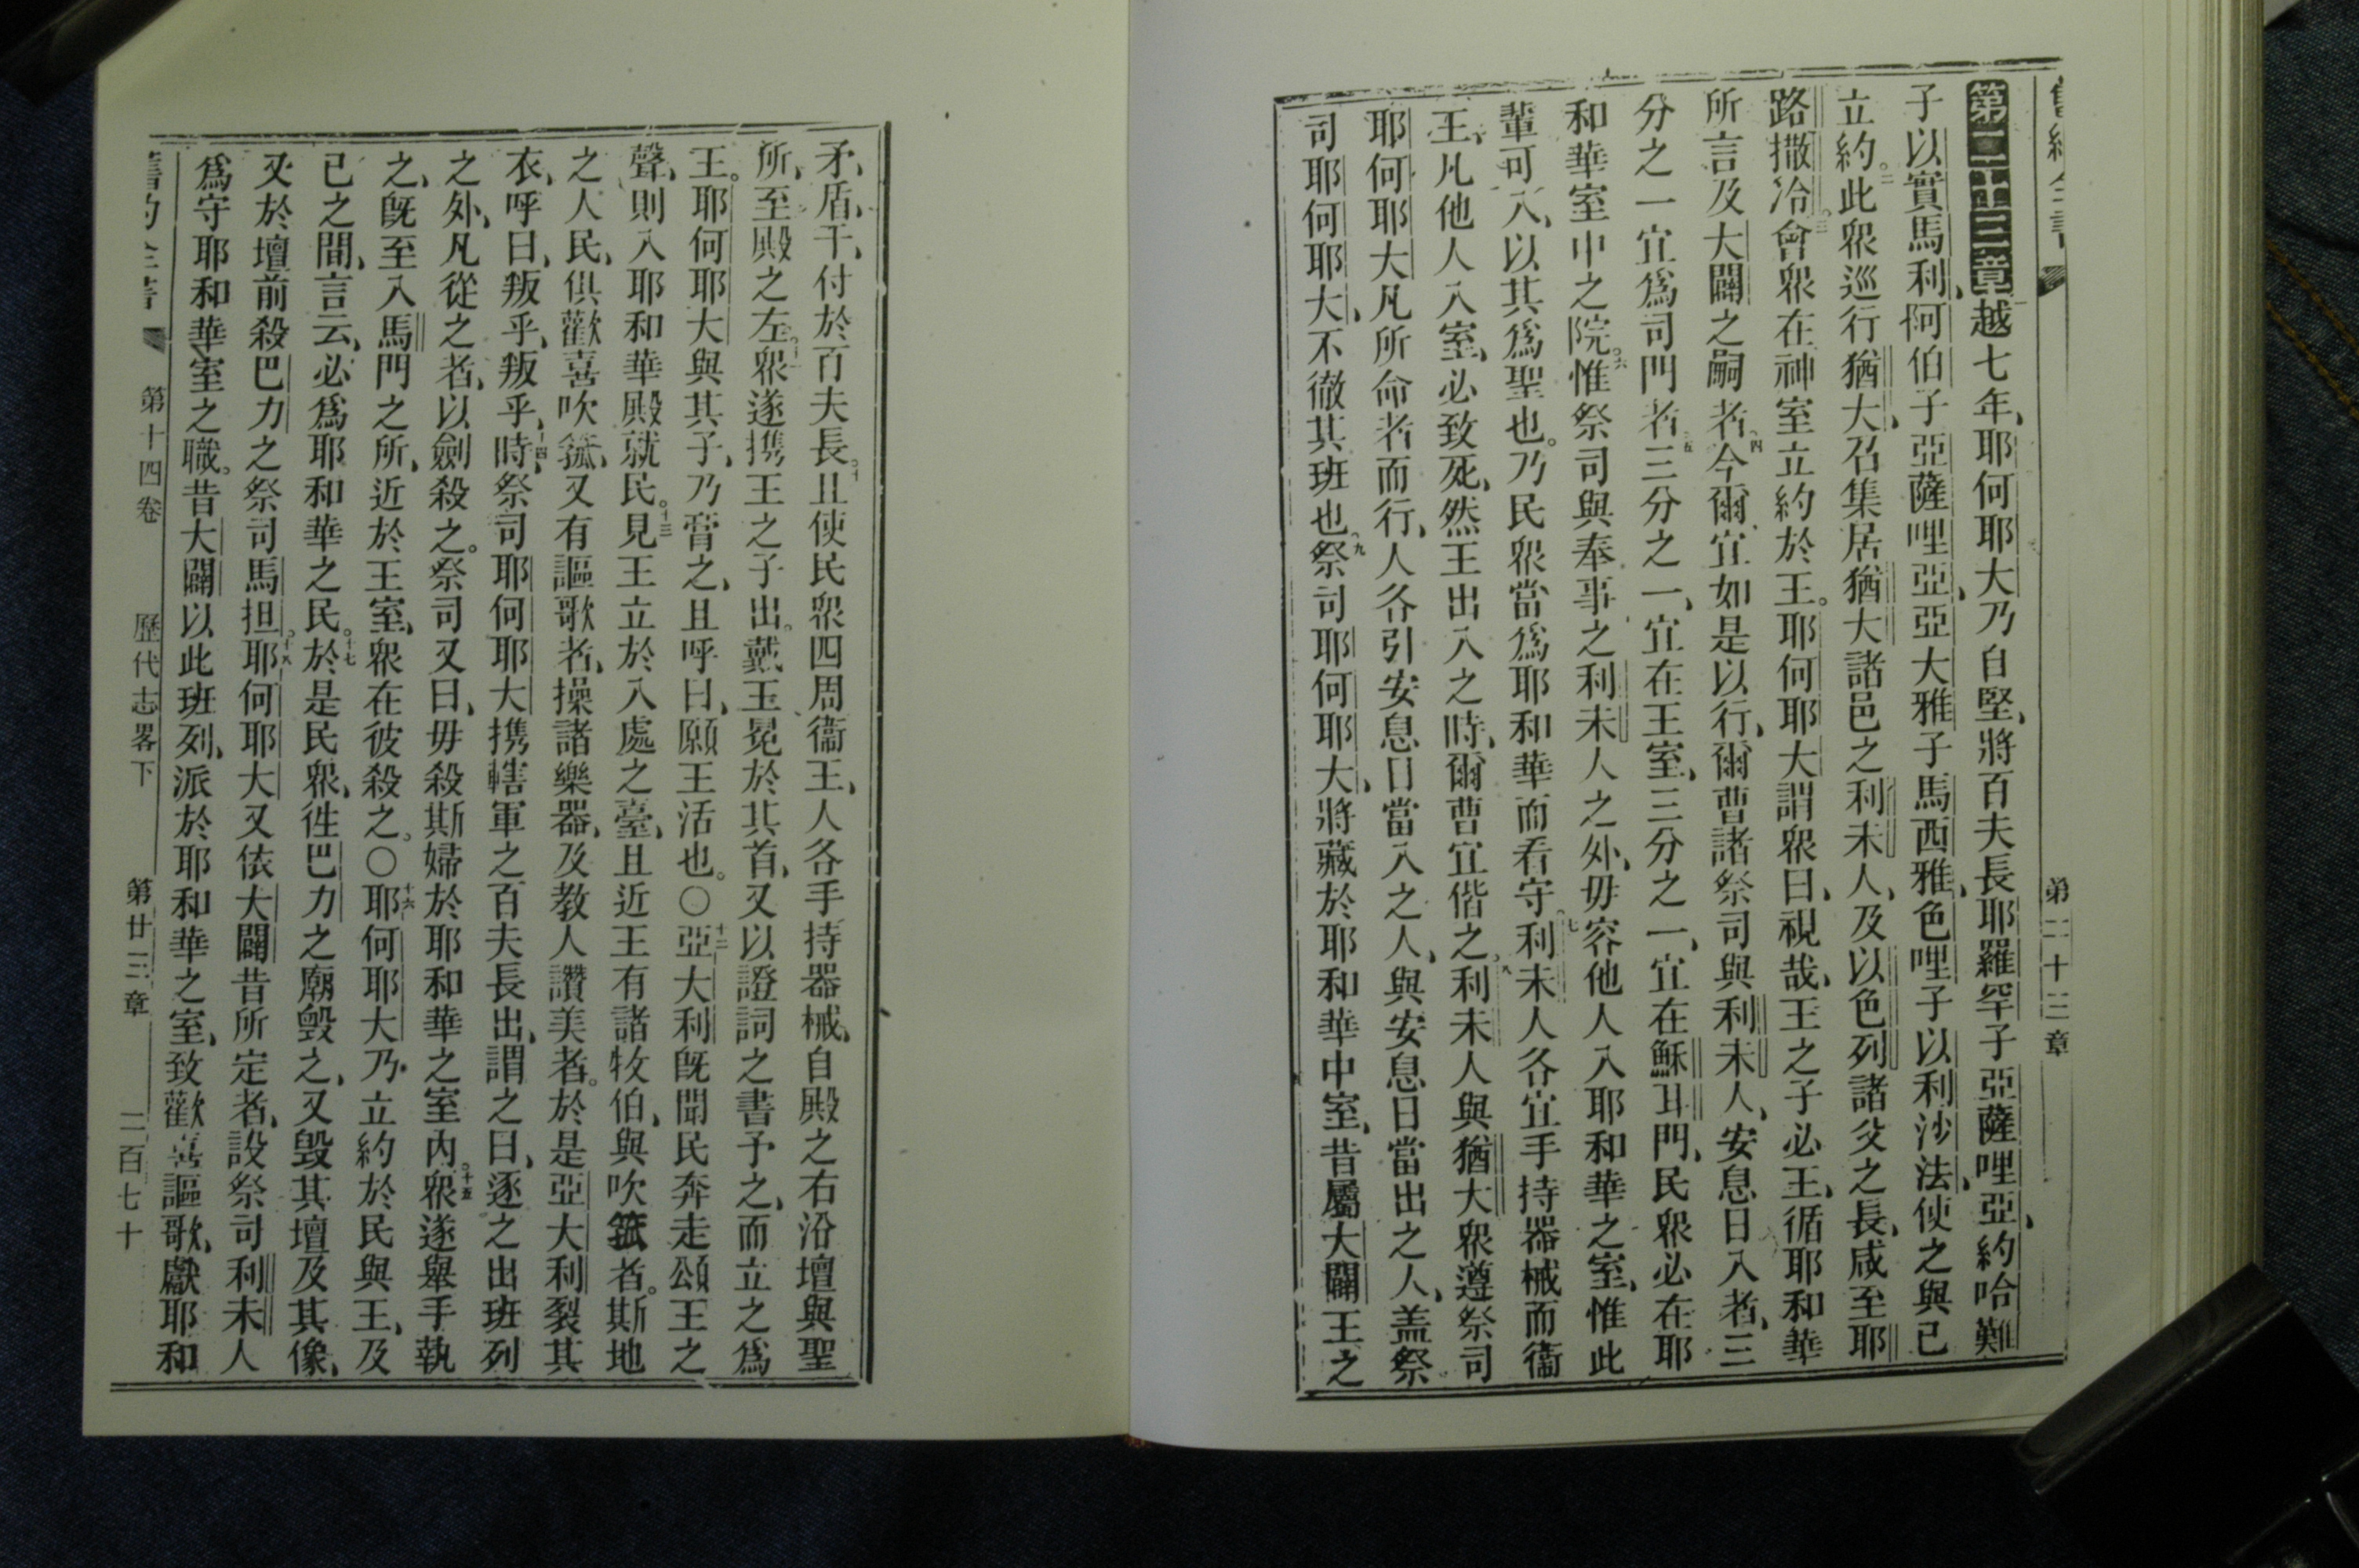 舊約全書
第二十三章
第二十三章越七年、耶何耶大乃自堅、將百夫長耶羅罕子亞薩哩亞、約哈難
子以實馬利、阿伯子亞薩哩亞、亞大雅子馬西雅、色哩子以利沙法、使之與己
立約。二此眾巡行猶大、召集居猶大諸邑之利未人、及以色列諸父之長、咸至耶
路撒冷。三會眾在神室立約於王。耶何耶大謂眾曰、視哉、王之子必王、循耶和華
所言及大闢之嗣者。四今爾宜如是以行、爾曹諸祭司與利未人、安息日入者、三
分之一宜為司門者。五三分之一、宜在王室、三分之一、宜在穌耳門、民眾必在耶
和華室中之院。六惟祭司與奉事之利未人之外、毋容他人入耶和華之室、惟此
輩可入、以其為聖也。乃民眾當為耶和華而看守。七利未人各宜手持器械而衞
王、凡他人入室、必致死、然王出入之時、爾曹宜偕之。八利未人與猶大眾遵祭司
耶何耶大凡所命者而行、人各引安息日當入之人、與安息日當出之人、盖祭
司耶何耶大、不徹其班也。九祭司耶何耶大、將藏於耶和華中室、昔屬大闢王之
矛、盾、干、付於百夫長。十且使民眾四周衞王、人各手持器械、自殿之右沿壇與聖
所、至殿之左。十一眾遂携王之子出。戴王冕於其首、又以證詞之書予之、而立之為
王。耶何耶大與其子、乃膏之、且呼曰、願王活也。〇十二亞大利旣聞民奔走頌王之
聲、則入耶和華殿就民。十三見王立於入處之臺、且近王有諸牧伯、與吹箛者。斯地
之人民、俱歡喜吹箛、又有謳歌者、操諸樂器、及教人讚美者。於是亞大利裂其
衣、呼曰、叛乎、叛乎、十四時、祭司耶何耶大携轄軍之百夫長出、謂之曰、逐之出班列
之外、凡從之者、以劍殺之。祭司又曰、毋殺斯婦於耶和華之室內。十五眾遂舉手執
之、旣至入馬門之所、近於王室、眾在彼殺之。〇十六耶何耶大乃立約於民與王、及
已之間、言云、必為耶和華之民。十七於是民眾、徃巴力之廟毀之、又毀其壇及其像、
又於壇前殺巴力之祭司馬担。十八耶何耶大又依大闢昔所定者、設祭司利未人
為守耶和華室之職。昔大闢以此班列、派於耶和華之室、致歡喜謳歌、獻耶和
舊約全書 第十四卷 歷代志畧下 第廿三章 二百七十